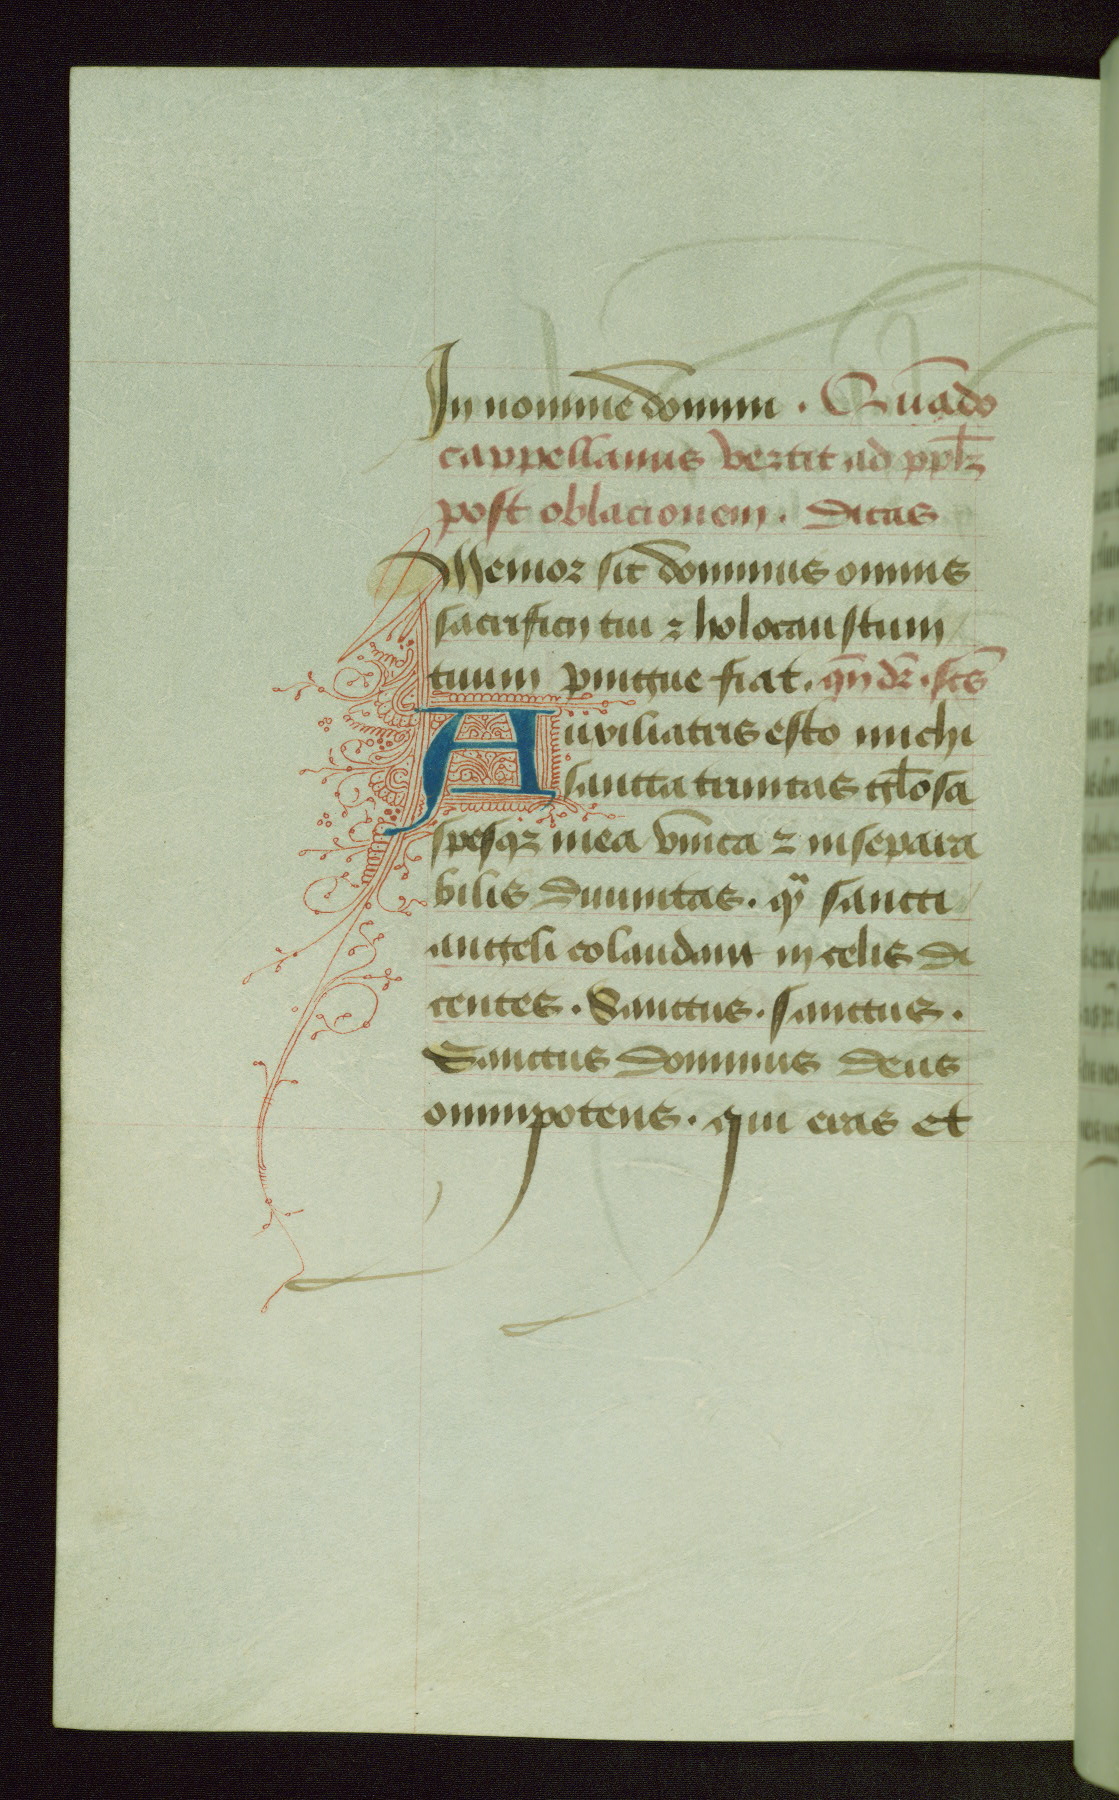 In nomine domini . Quādo
cappellanus vertit ad pplꝫ
post oblacionem . Dicas
Memor sit dominus omnis
sacrificij tui ⁊ holocaustum
tuum pingue fiat . qn̄ dr̄ . scs̄
Auxiliatris esto michi
sancta trinitas gl̄osa
spesqꝫ mea vnica ⁊ insepara
bilis diuinitas . qͣ sancti
angeli colaudant in celis di
centes . Sanctus . sanctus .
Sanctus dominus deus
omnipotens . qui eras et